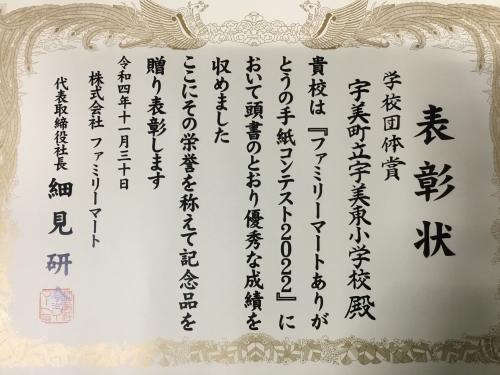 表彰状
学校団体賞
宇美町立宇美東小学校 殿
貴校は『ファミリーマートありが
とうの手紙コンテスト2022』に
おいて頭書のとおり優秀な成績を
収めました
ここにその栄誉を称えて記念品を
贈り表彰します
令和四年十一月三十日
株式会社 ファミリーマート
代表取締役社長 細見研